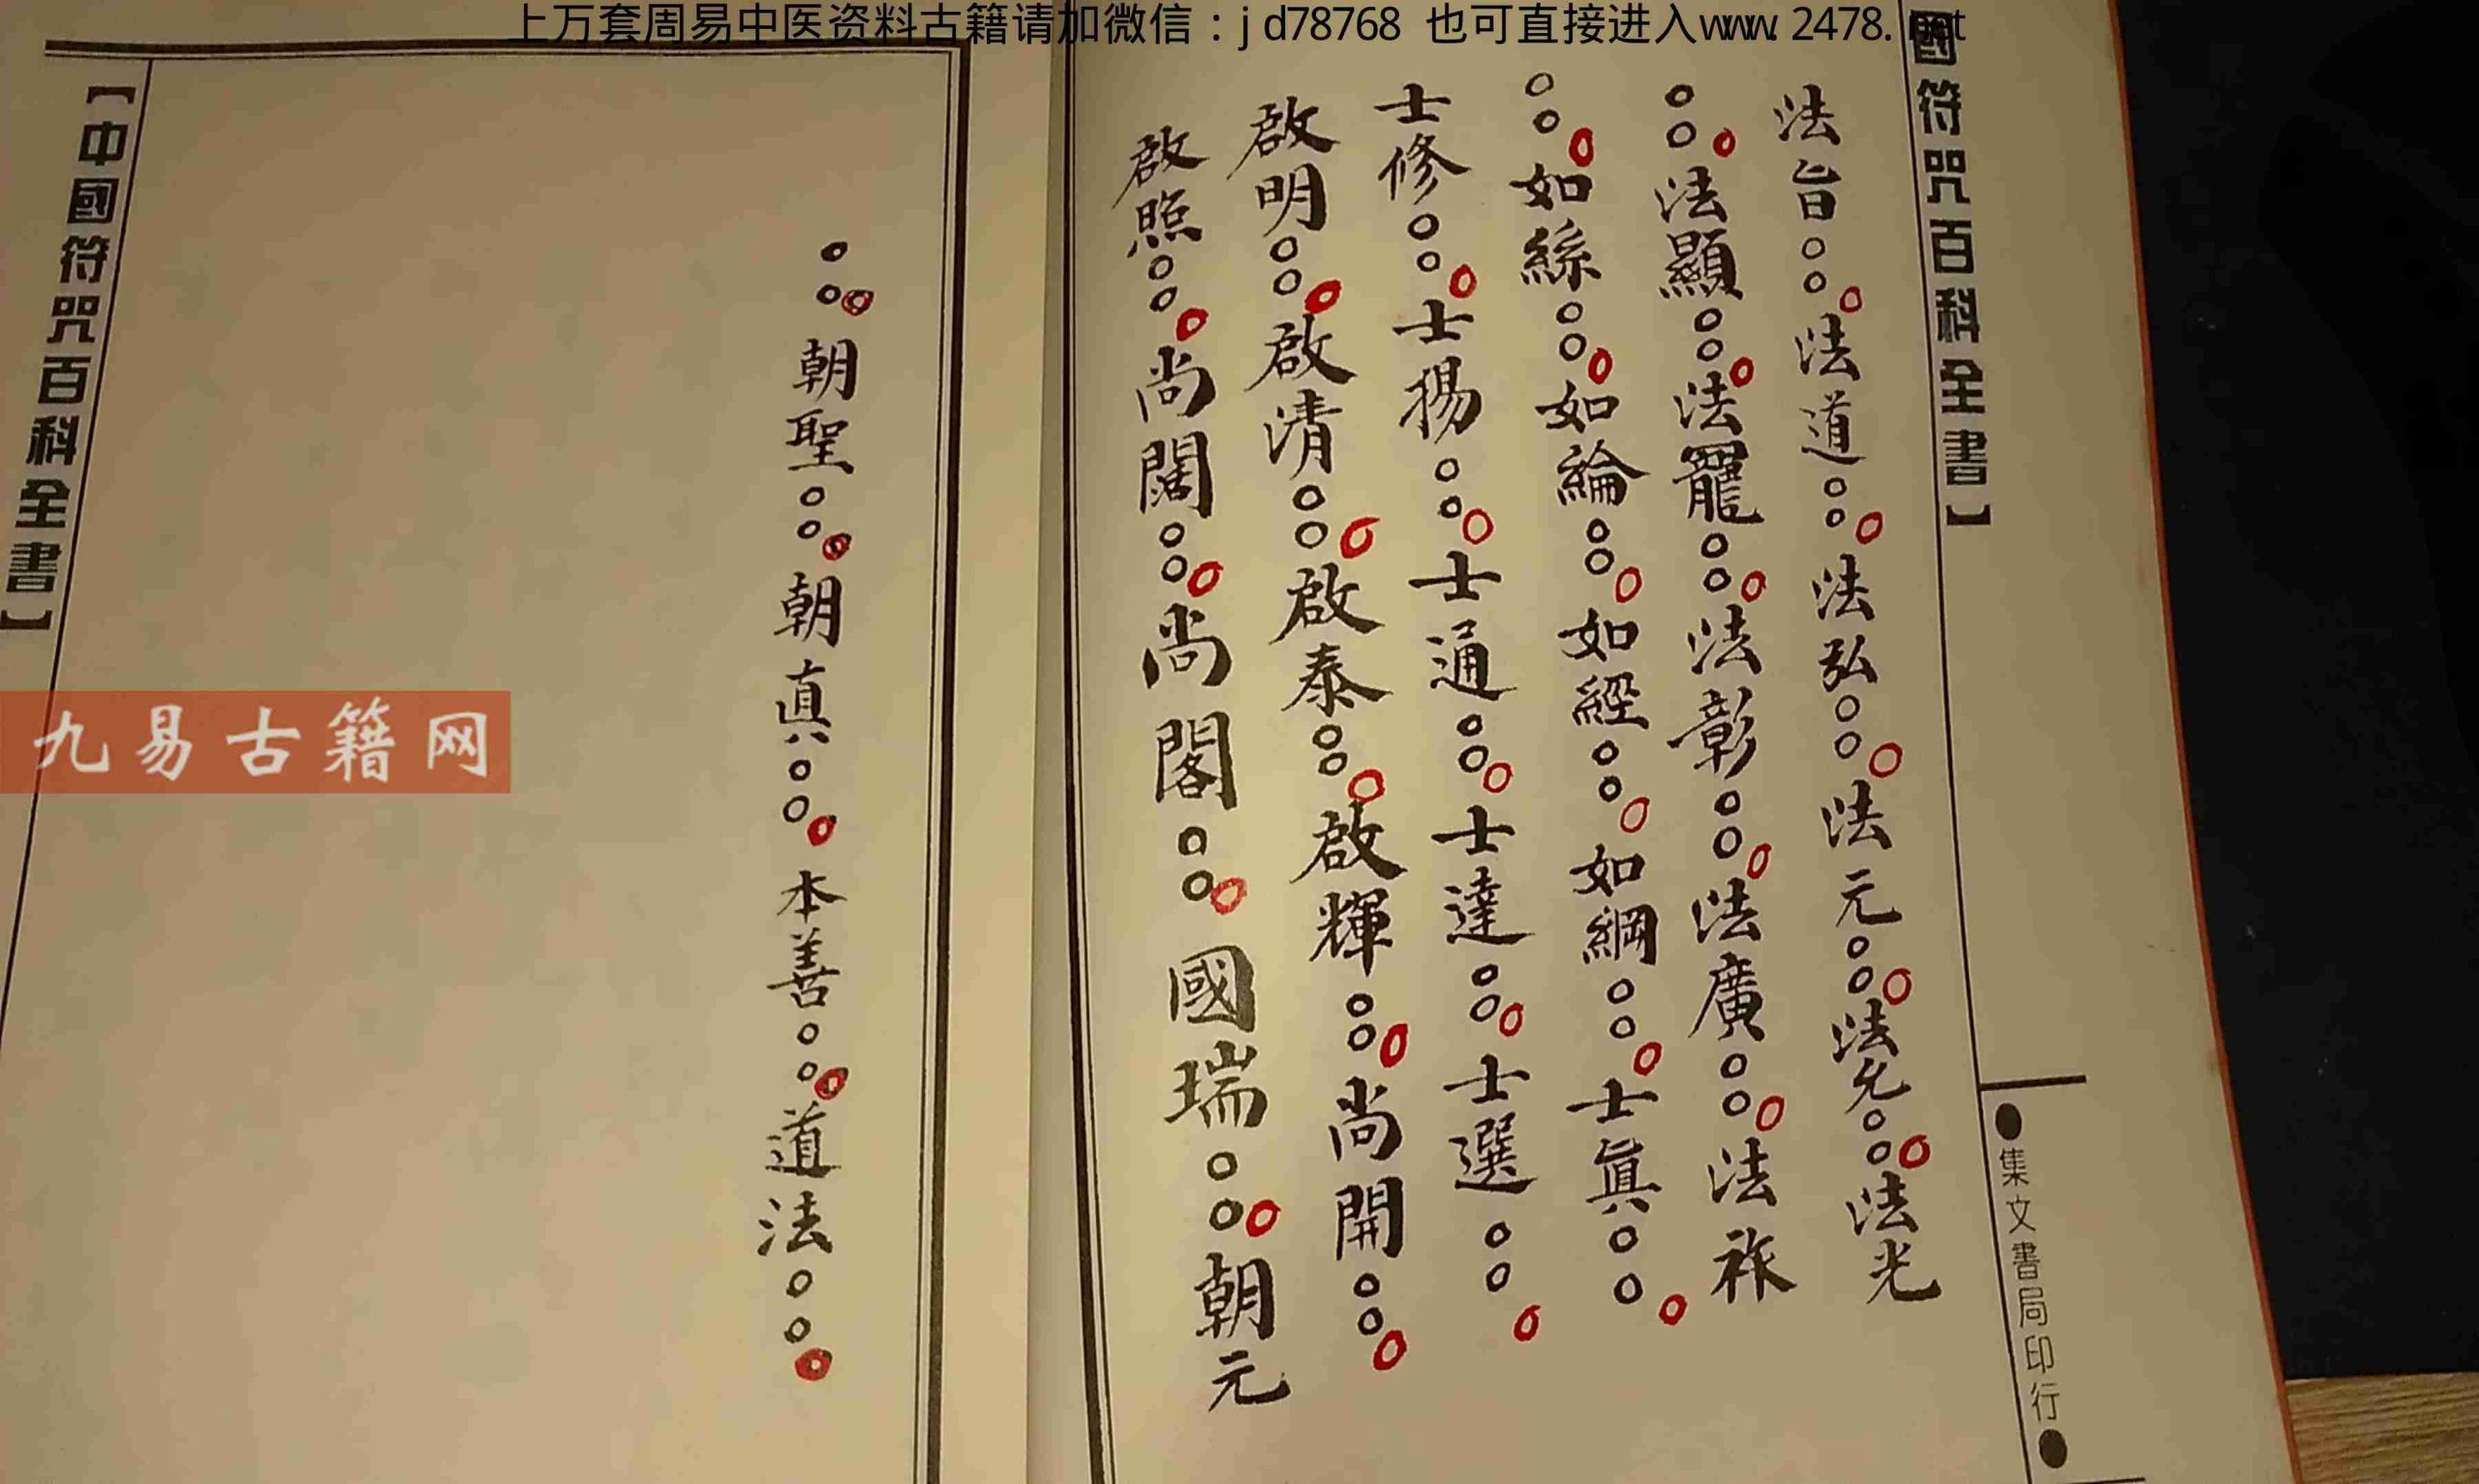 上万套周易中医资料古籍请加微信：jd78768 也可直接进入www.2478.net
國符咒百科全書】
法旨○○○法道○○○法弘○○○法元○○○法允○○○法光
○○○法顯○○○法羆○○○法彰○○○法廣○○○法祚
○○○如絲○○○如綸○○○如經○○○如綱○○○士眞○○○
士修○○○士揚○○○士通○○○士達○○○士選○○○
啟明○○○啟清○○○啟泰○○○啟輝○○○尚開○○○
啟照○○○尚闊○○○尚閣○○○國瑞○○○朝元
●集文書局印行●
○○○朝聖○○○朝眞○○○本善○○○道法○○○
【中國符咒百科全書】
九易古籍网